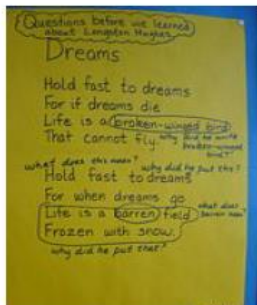 Questions before we learned
about Langston Hughes
Dreams
Hold fast to dreams
For if dreams die
Life is a broken-winged bird
That cannot fly.
why did he write
broken-winged
bird?
what does this mean?
why did he put this?
Hold fast to dreams
For when dreams go
Life is a barren field
what does
barren mean?
Frozen with snow.
why did he put that?